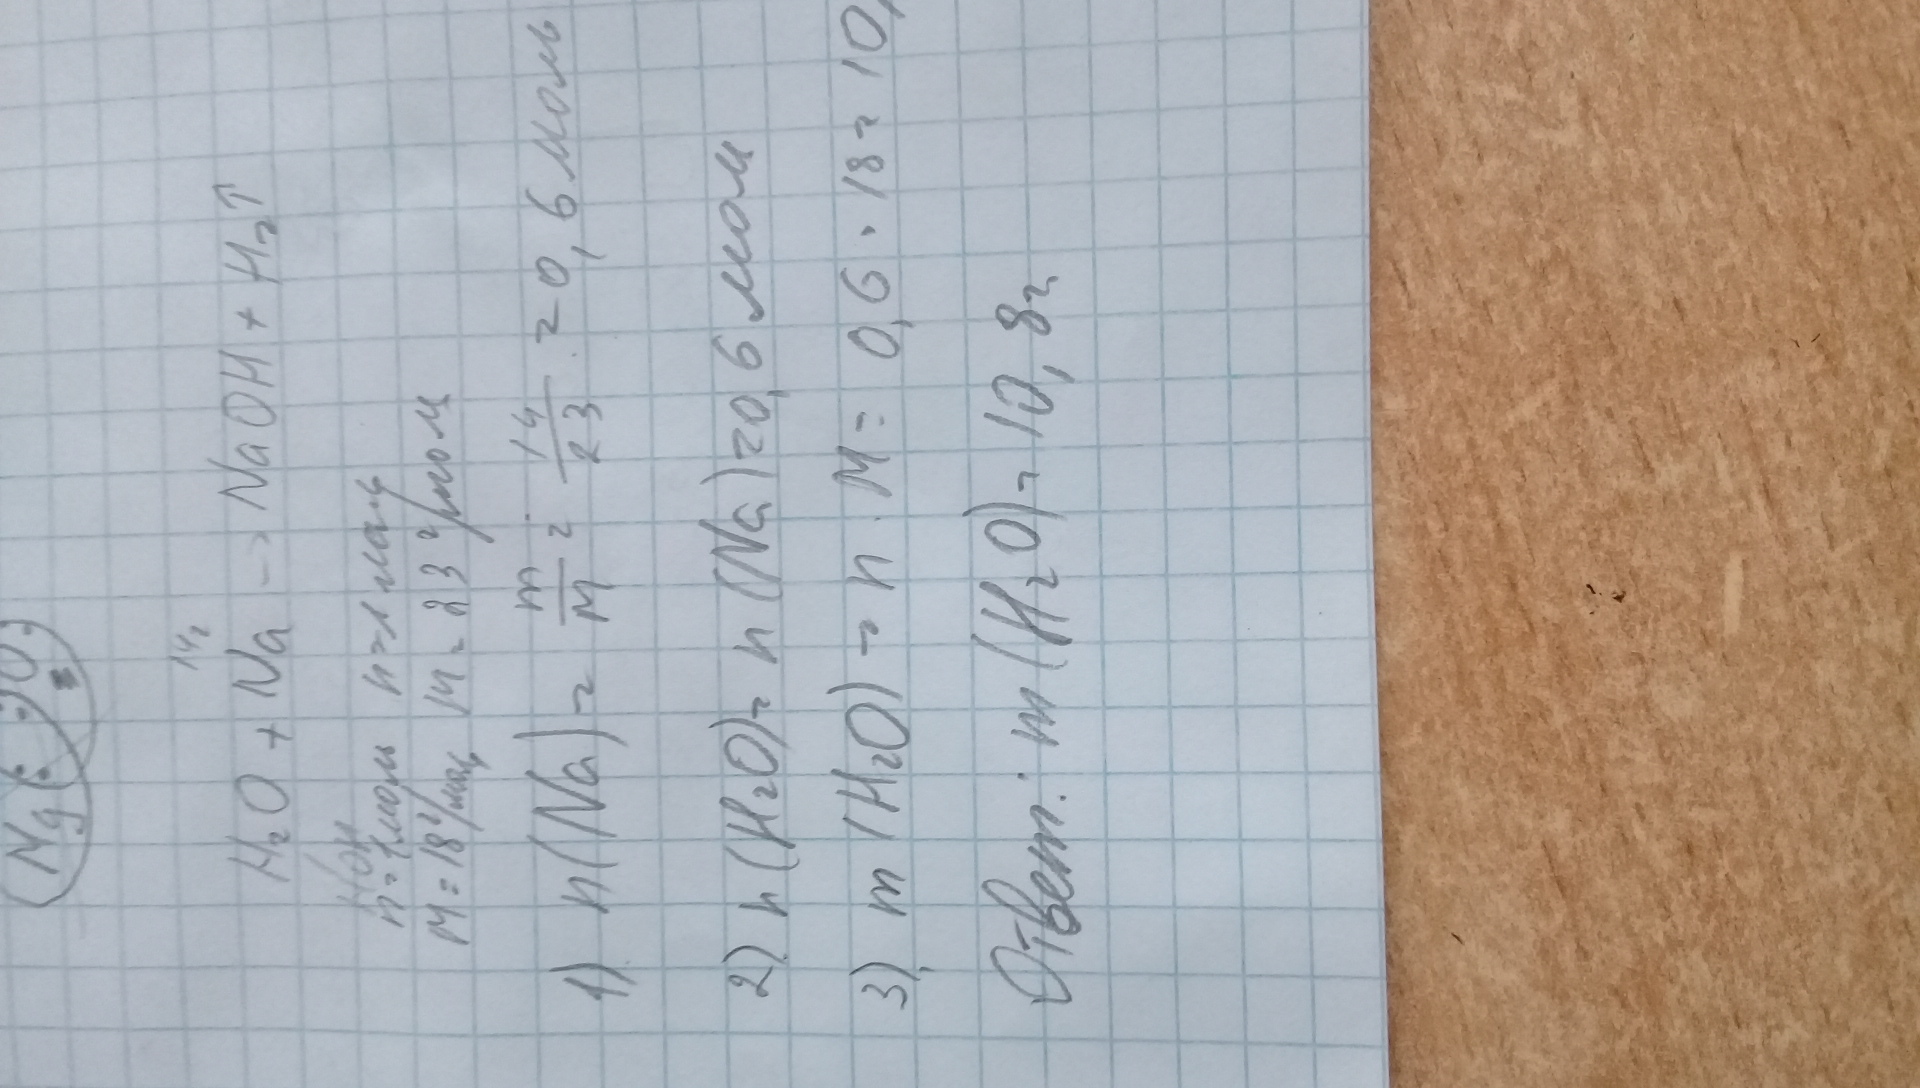 14г
H₂O + Na → NaOH + H₂↑
HOH
n=1моль n=1моль
M=18г/моль M=23г/мол
1) n(Na) = m/M = 14/23 = 0,6 моль
2) n(H₂O) = n(Na) = 0,6 мол
3) m(H₂O) = n · M = 0,6 · 18 = 10,
Ответ: m(H₂O) = 10,8г